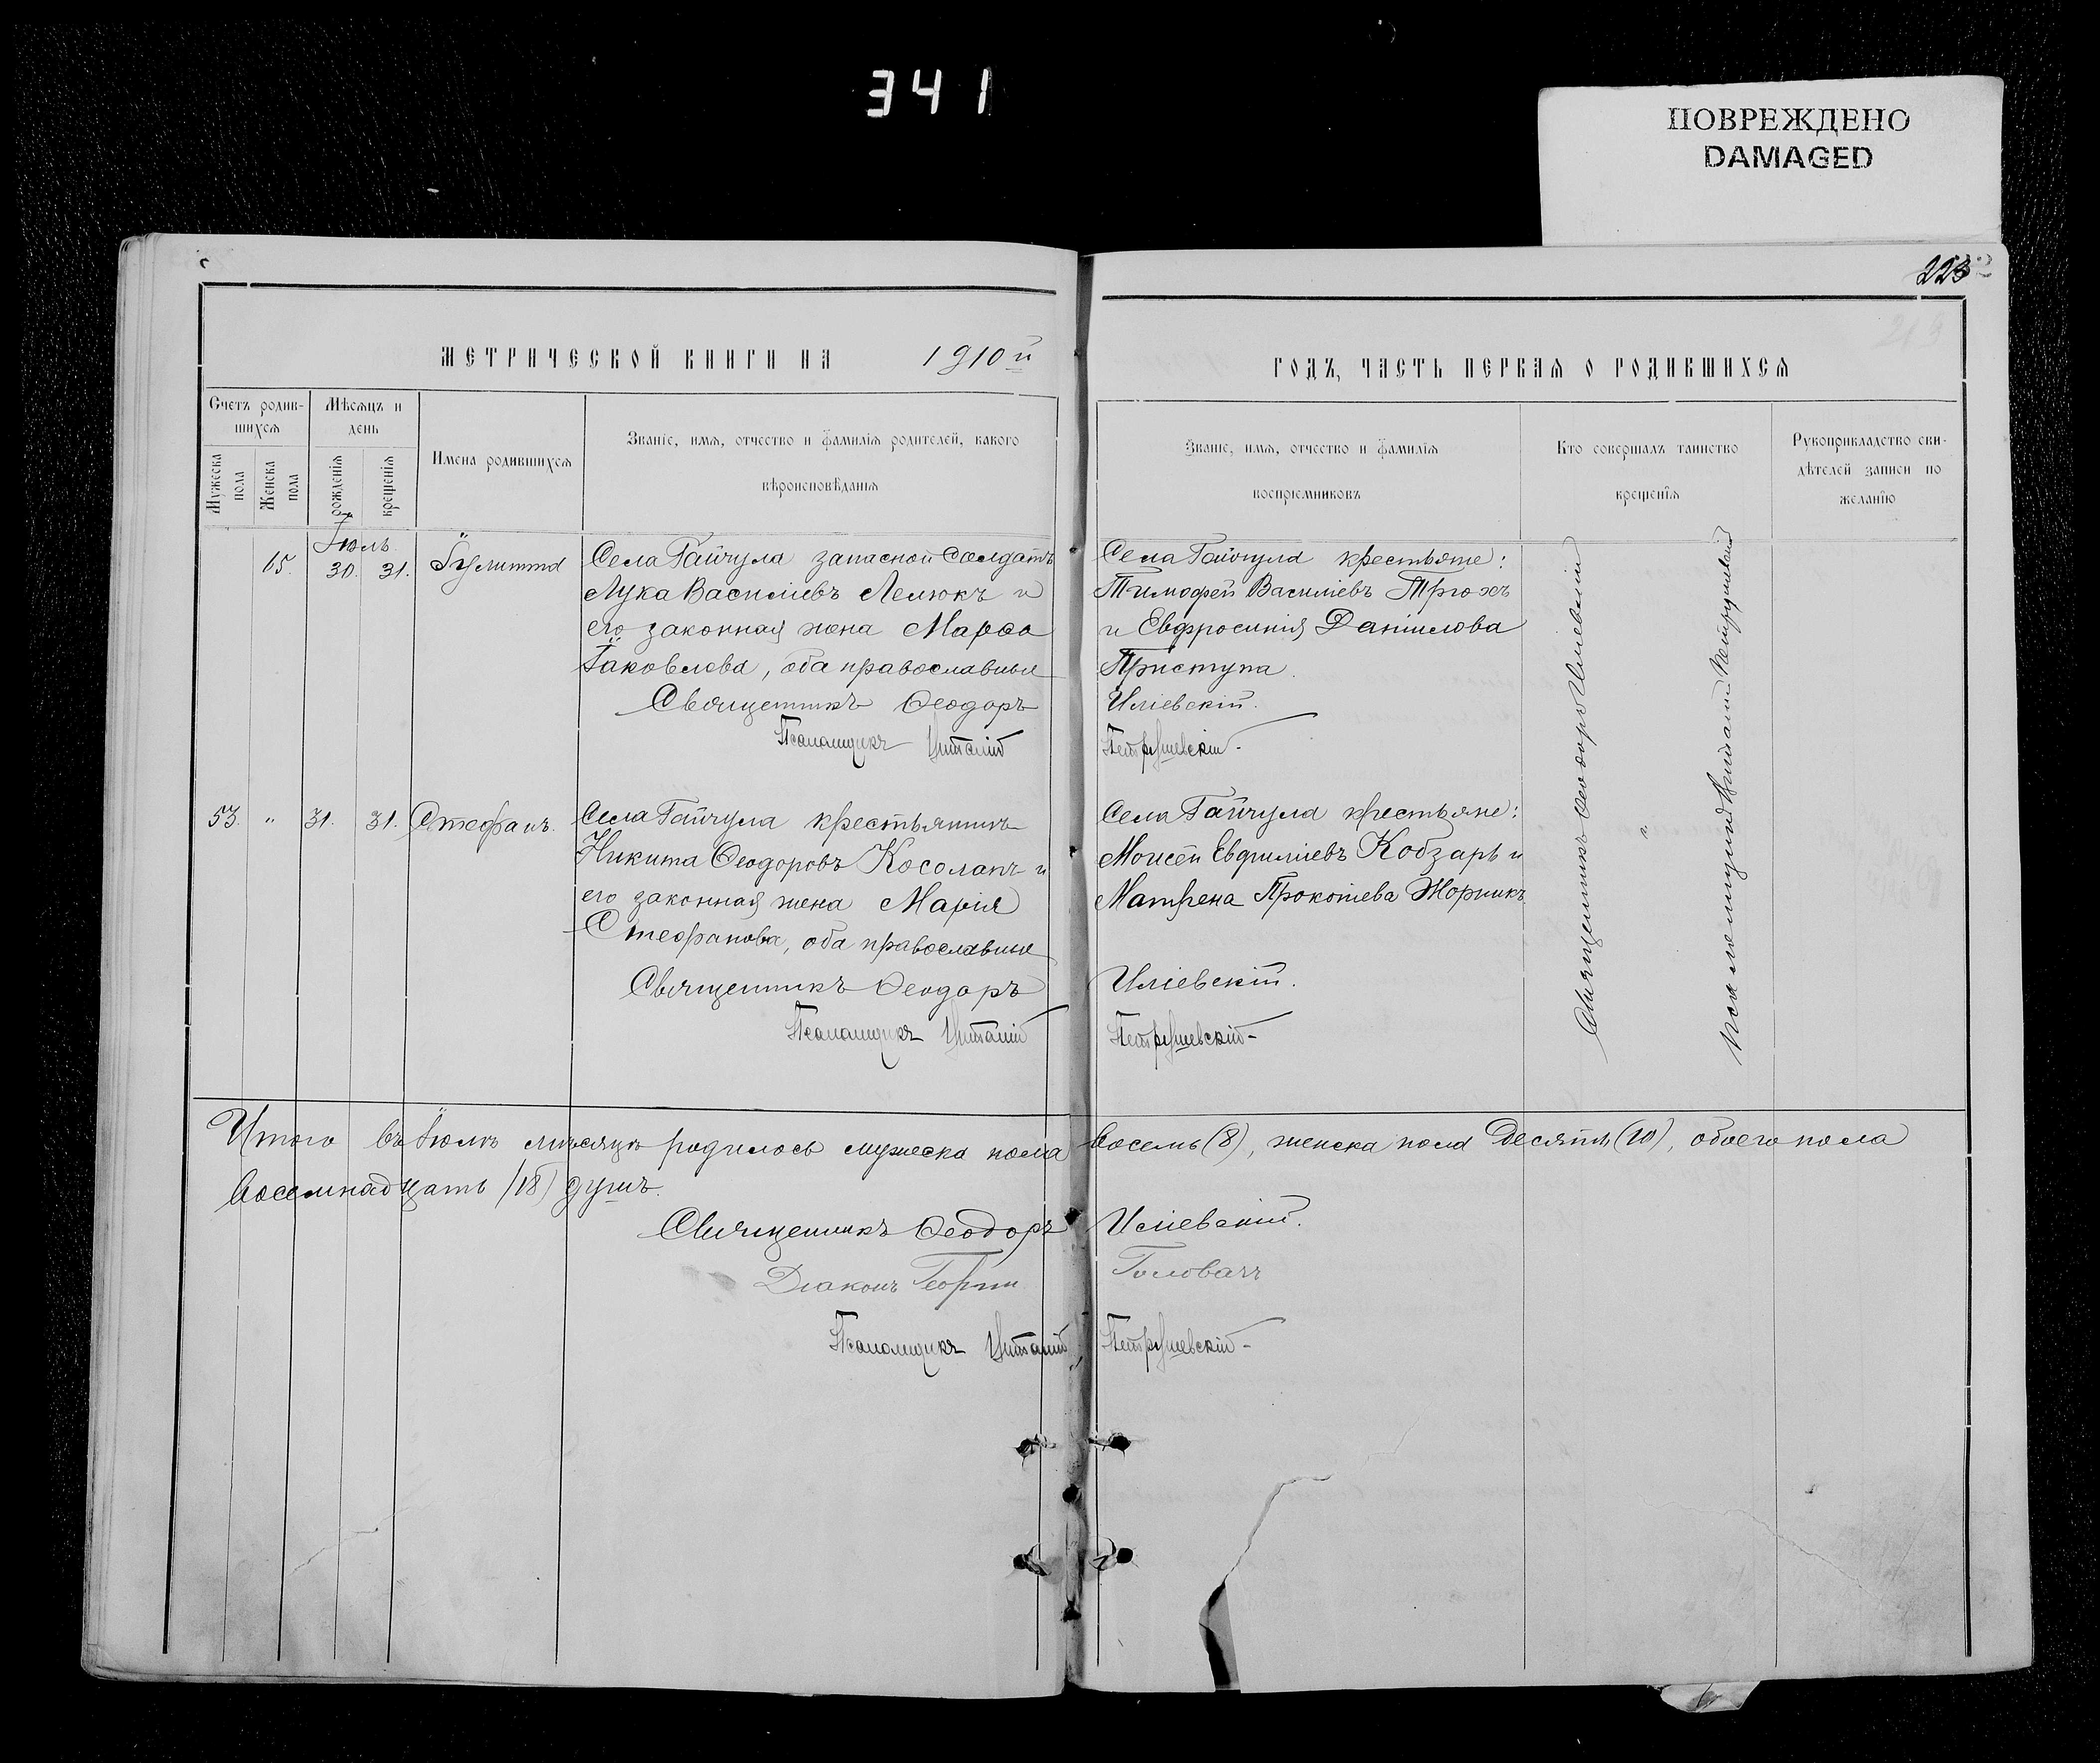 341
ПОВРЕЖДЕНО
DAMAGED
223
МЕТРИЧЕСКОЙ КНИГИ НА 1910й
ГОДЪ, ЧАСТЬ ПЕРВАЯ О РОДИВШИХСЯ
Счетъ родив-
шихся
Мѣсяцъ и
день
Мужеска
пола
Женска
пола
рожденія
крещенія
Имена родившихся
Званіе, имя, отчество и фамилія родителей, какого
вѣроисповѣданія
Званіе, имя, отчество и фамилія
воспріемниковъ
Кто совершалъ таинство
крещенія
Рукоприкладство сви-
дѣтелей записи по
желанію
Іюль
15. 30. 31. Іулитта
Села Гайчула запасной солдатъ
Лука Василіевъ Лелюкъ и
его законная жена Марѳа
Іаковлева, оба православные
Священникъ Ѳеодоръ
Псаломщикъ
Села Гайчула крестьяне:
Тимофей Василіевъ Трюхъ
и Евфросинія Даніилова
Приступа.
Иліевскій.
Петрушевскій
53. " 31. 31. Стефанъ.
Села Гайчула крестьянинъ
Никита Ѳеодоровъ Косолапъ и
его законная жена Марія
Стефанова, оба православные
Священникъ Ѳеодоръ
Псаломщикъ
Села Гайчула крестьяне:
Моисей Евфиміевъ Кобзарь и
Матрена Прокопіева Жорникъ
Иліевскій.
Петрушевскій
Священникъ Ѳеодоръ Иліевскій
и
Псаломщикъ Петрушевскій
Итого въ Іюлѣ мѣсяцѣ родилось мужеска пола восемь (8), женска пола десять (10), обоего пола
восемнадцать (18) душъ.
Священникъ Ѳеодоръ Иліевскій.
Діаконъ Георгій Головачъ
Псаломщикъ Петрушевскій